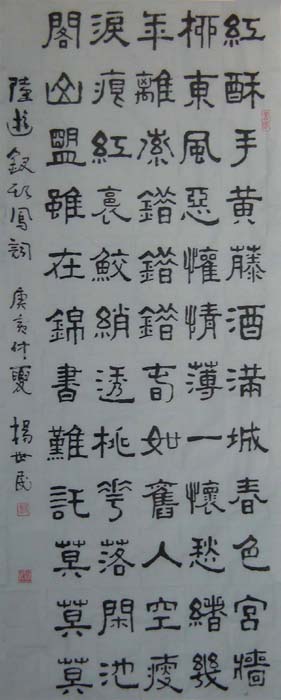 紅酥手黃藤酒滿城春色宮牆
桺東風惡懽情薄一懷愁緒幾
年離索錯錯錯春如舊人空瘦
淚痕紅裛鮫綃透桃花落閑池
閣山盟雖在錦書難託莫莫莫
陸游釵頭鳳詞 庚寅仲夏 楊世民